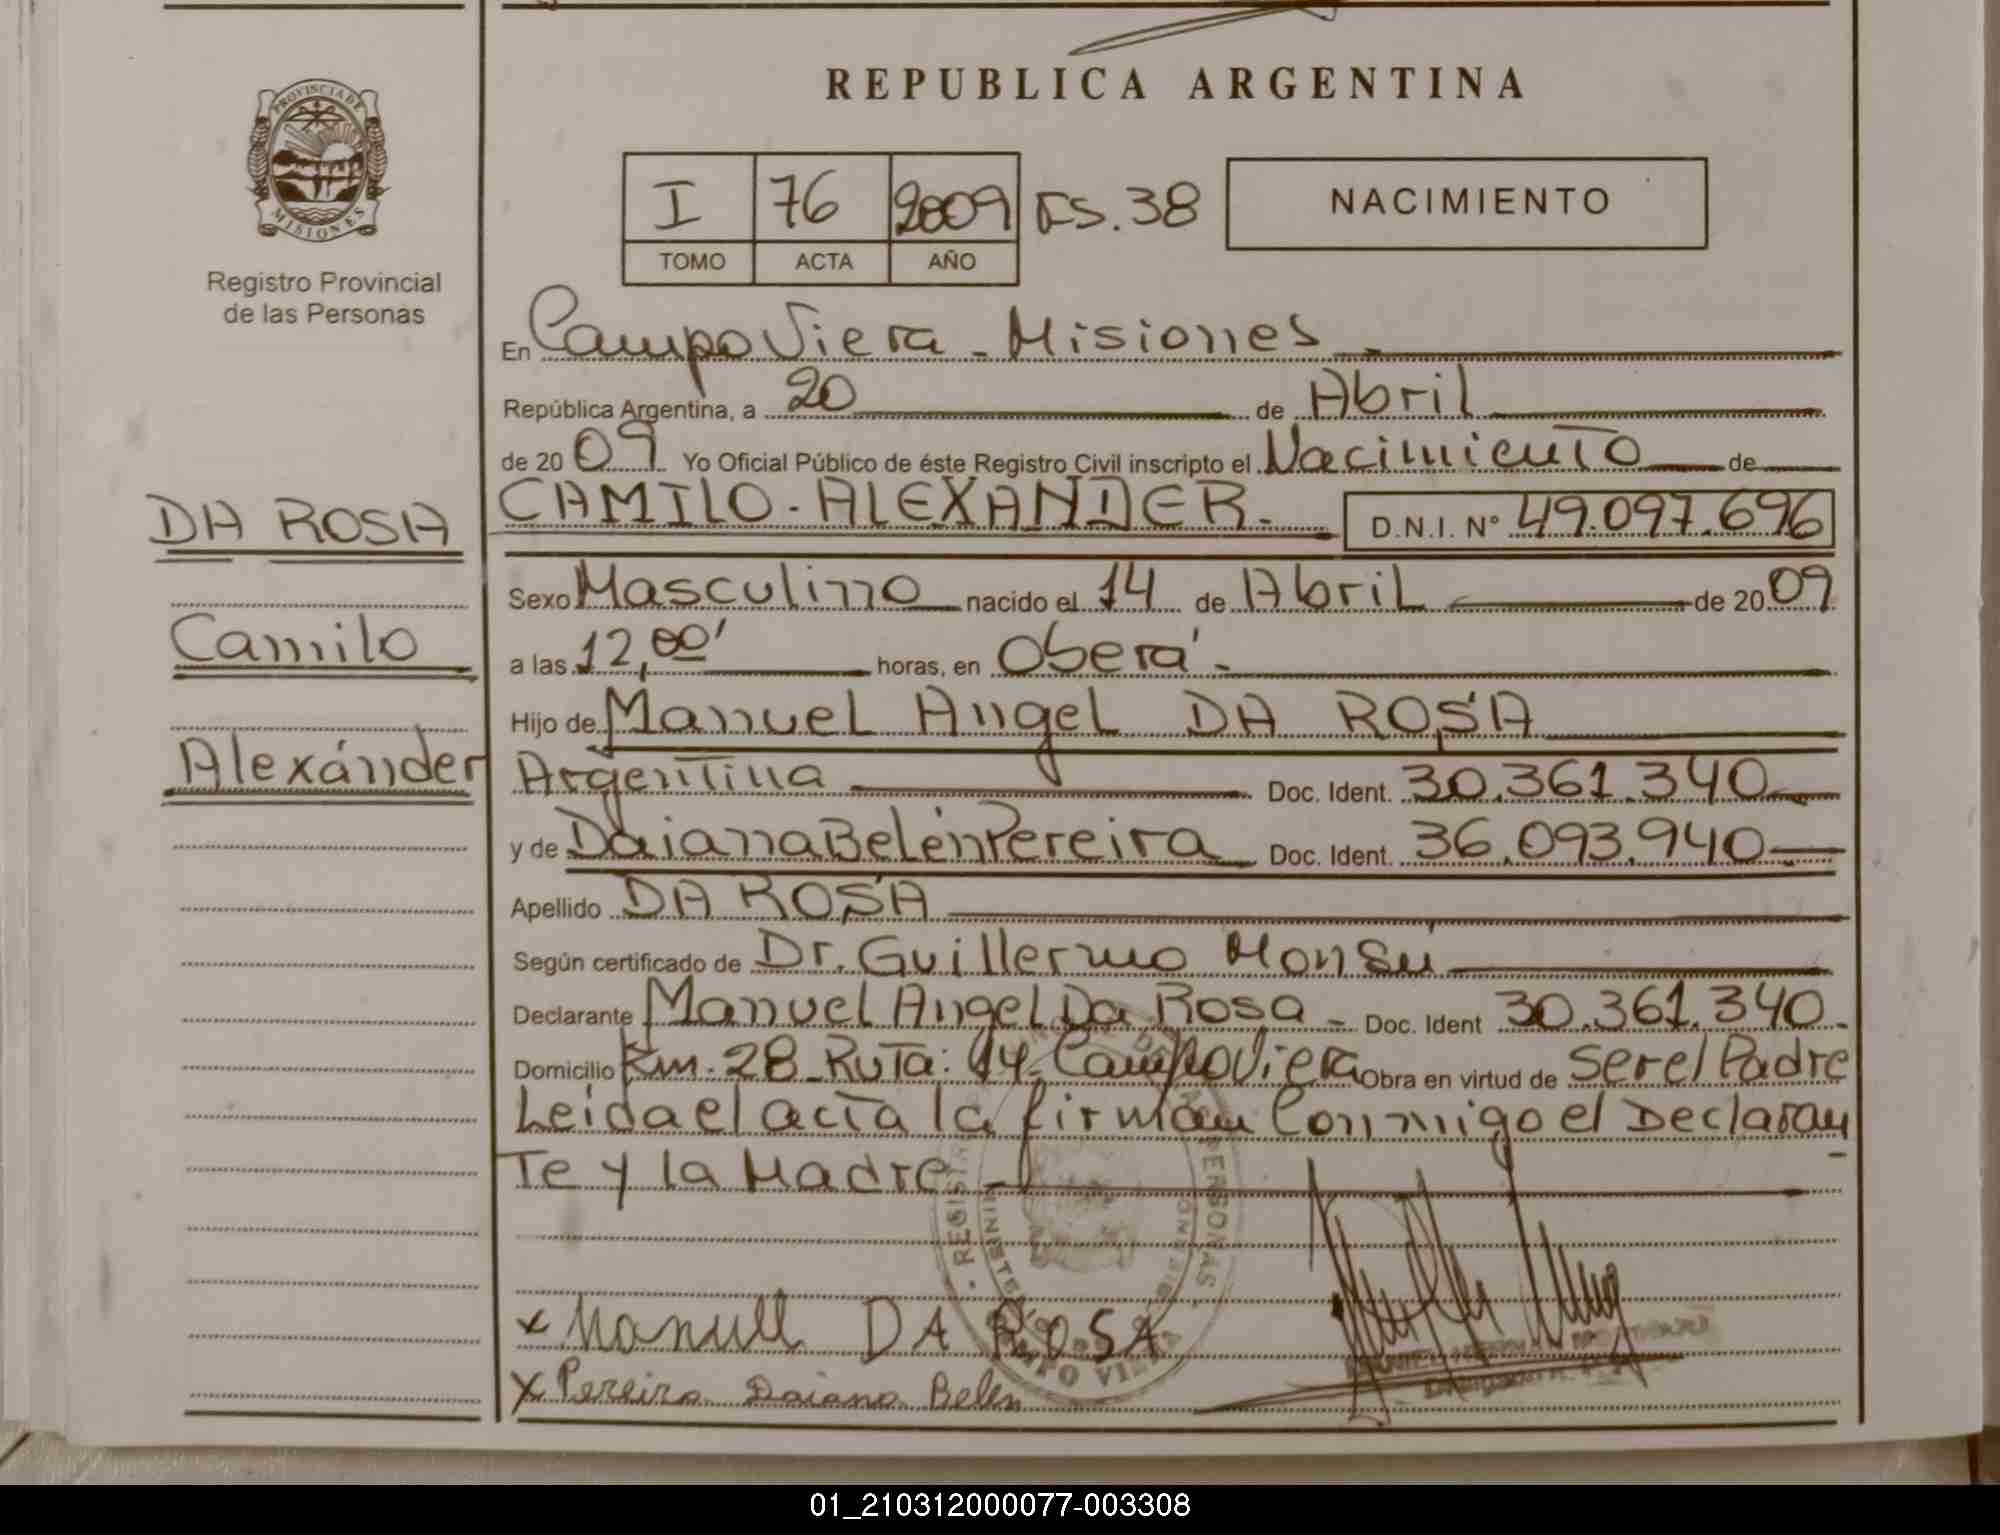 REPUBLICA ARGENTINA
PROVINCIA DE
MISIONES
Registro Provincial
de las Personas
I 76 2009 FS.38
TOMO ACTA AÑO
NACIMIENTO
En Campo Viera - Misiones -
República Argentina, a 20 de Abril
de 2009 Yo Oficial Público de éste Registro Civil inscripto el Nacimiento de
DA ROSA
Camilo
Alexánder
CAMILO - ALEXANDER. D.N.I. N° 49.097.696
Sexo Masculino nacido el 14 de Abril de 2009
a las 12,00' horas, en Oberá -
Hijo de Manuel Angel DA ROSA
Argentina Doc. Ident. 30.361.340
y de Daiana Belén Pereira Doc. Ident. 36.093.940
Apellido DA ROSA
Según certificado de Dr. Guillermo Monsú
Declarante Manuel Angel Da Rosa - Doc. Ident 30.361.340.
Domicilio Km. 28 - Ruta: 14 - Campo Viera Obra en virtud de Ser el Padre
Leída el acta la firman Conmigo el Declaran
Te y la Madre -
REGISTR
DE LAS PERSONAS
MINISTE
CAMPO VIERA
x Manuel DA ROSA
x Pereira Daiana Belen
01_210312000077-003308